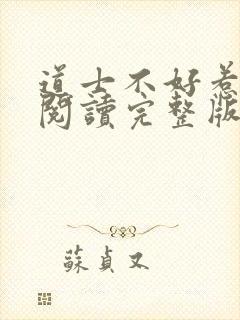 道士不好惹
閱讀完整版
蘇貞又